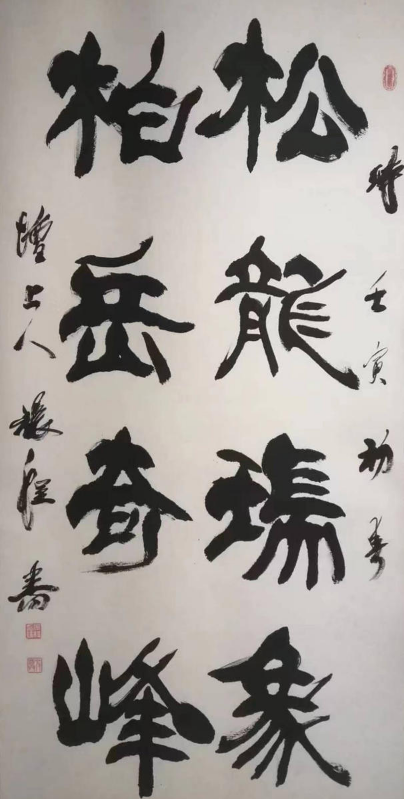 時壬寅初春
松龍瑞象
柏岳奇峰
上人程書